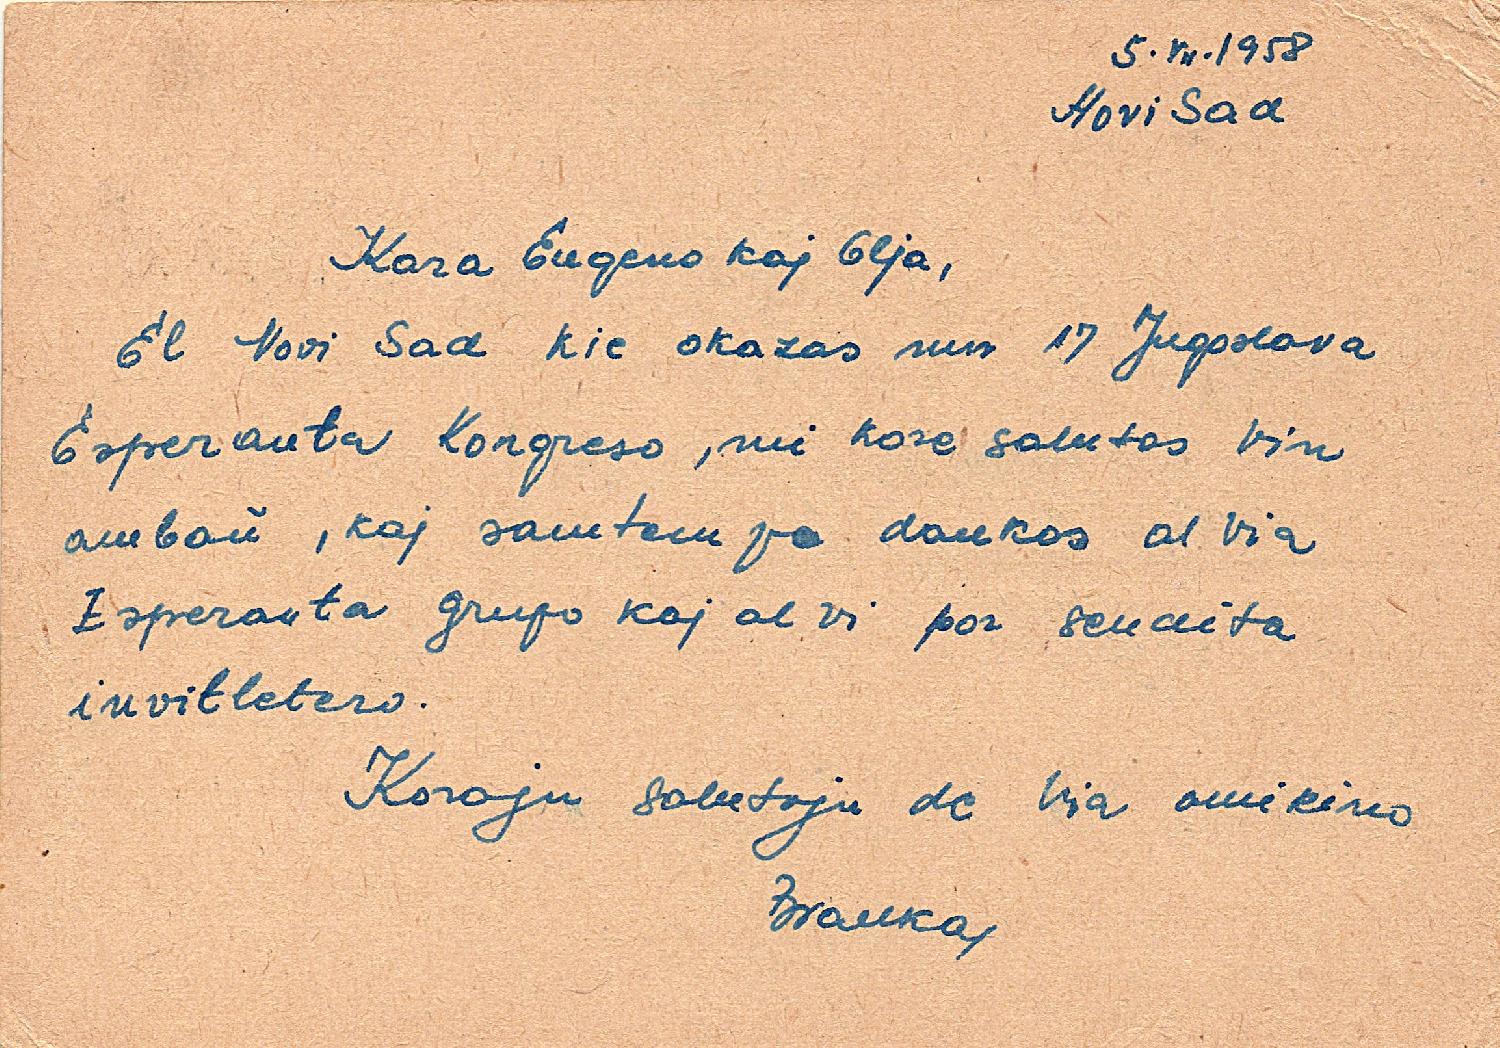 5. VII. 1958
Novi Sad
Kara Eugeno kaj Olja,
El Novi Sad kie okazas nun 17 Jugoslava
Esperanta Kongreso, mi kore salutas vin
ambaŭ, kaj samtempe dankas al via
Esperanta grupo kaj al vi por sendita
invitletero.
Korajn salutojn de via amikino
Branka